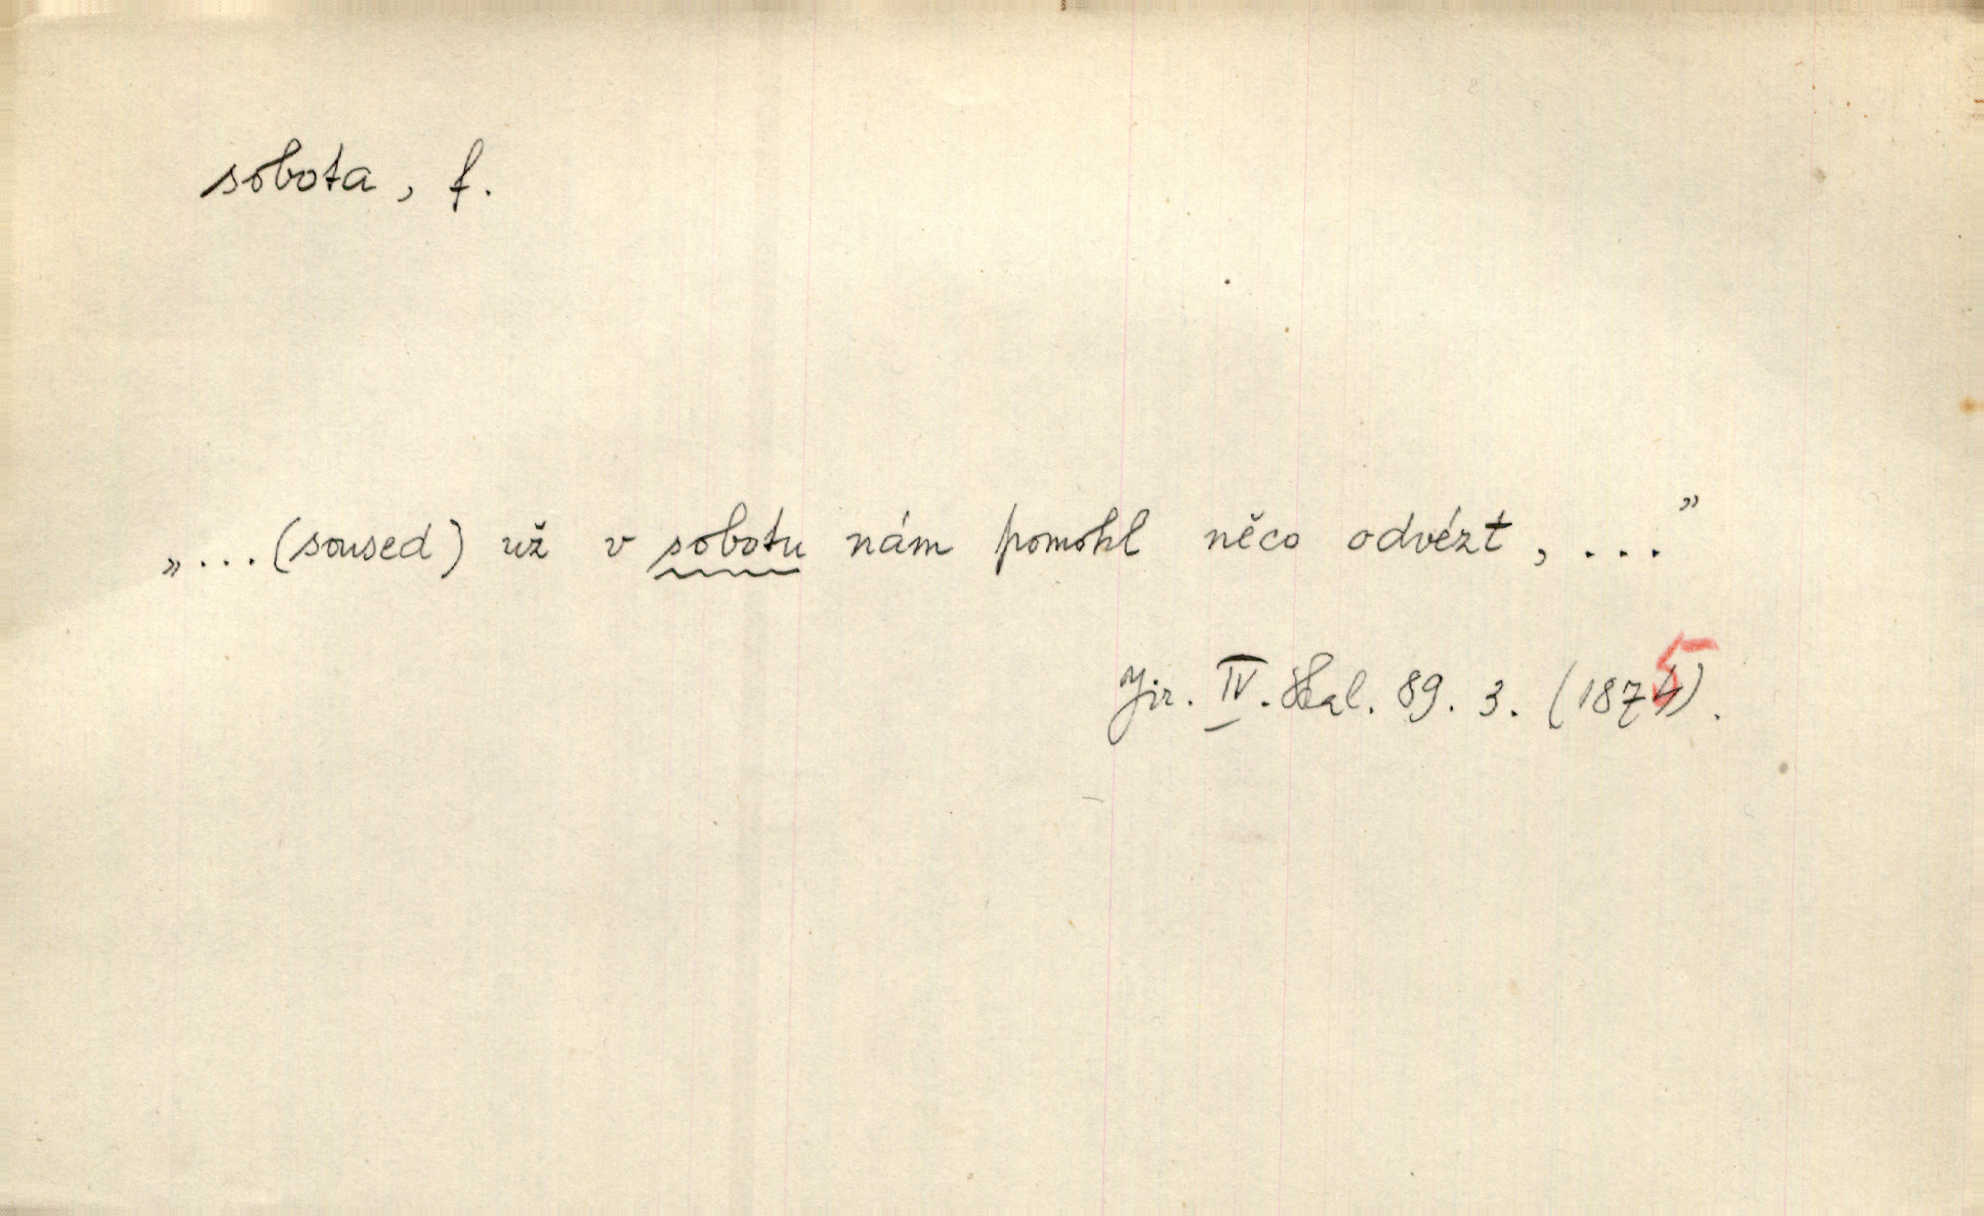 sobota, f.
„...(soused) už v sobotu nám pomohl něco odvézt, ...”
Jir. IV. Skal. 89. 3. (1875).